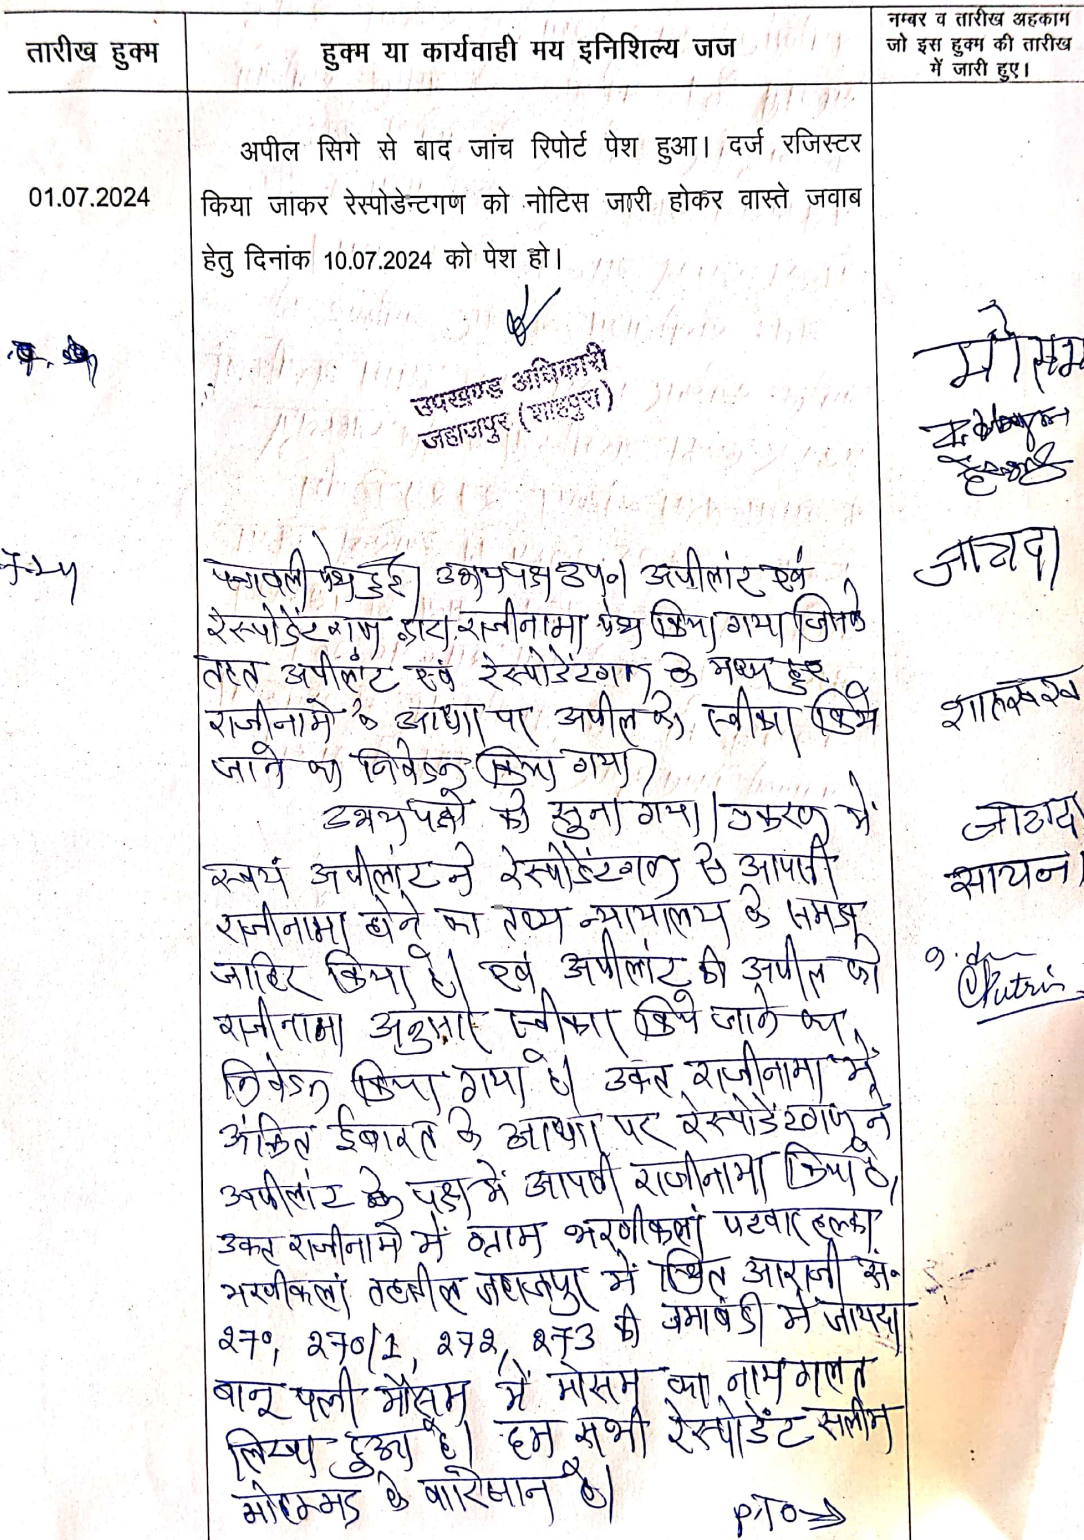 तारीख हुक्म
हुक्म या कार्यवाही मय इनिशिल्य जज
नम्बर व तारीख अहकाम
जो इस हुक्म की तारीख
में जारी हुए।
अपील सिगे से बाद जांच रिपोर्ट पेश हुआ। दर्ज रजिस्टर
01.07.2024
किया जाकर रेस्पोडेन्टगण को नोटिस जारी होकर वास्ते जवाब
हेतु दिनांक 10.07.2024 को पेश हो।
उपखण्ड अधिकारी
जहाजपुर (शाहपुरा)
मोसम
पत्रावली पेश हुई। उभयपक्ष उप०। अपीलांट एवं
रेस्पोडेंटगण द्वारा राजीनामा पेश किया गया जिसके
तहत अपीलांट एवं रेस्पोडेंटगण के मध्य हुए
राजीनामे के आधार पर अपील को स्वीकार किये
जाने का निवेदन किया गया।
शाहरूख
उभयपक्षों को सुना गया। प्रकरण में
स्वयं अपीलांट ने रेस्पोडेंटगण से आपसी
राजीनामा होने का तथ्य न्यायालय के समक्ष
जाहिर किया है। एवं अपीलांट की अपील को
राजीनामा अनुसार स्वीकार किये जाने का
निवेदन किया गया है। उक्त राजीनामा में
अंकित ईबारत के आधार पर रेस्पोडेंटगण ने
अपीलांट के पक्ष में आपसी राजीनामा किया है,
उक्त राजीनामे में ग्राम भरणीकलां पटवार हल्का
भरणीकलां तहसील जहाजपुर में स्थित आराजी सं॰
270, 270/1, 272, 273 की जमाबंदी में जायदा
बानू पत्नी मौसम में मोसम का नाम गलत
लिखा हुआ है। हम सभी रेस्पोडेंट सलीम
मोहम्मद के वारिसान है।
P.T.O→